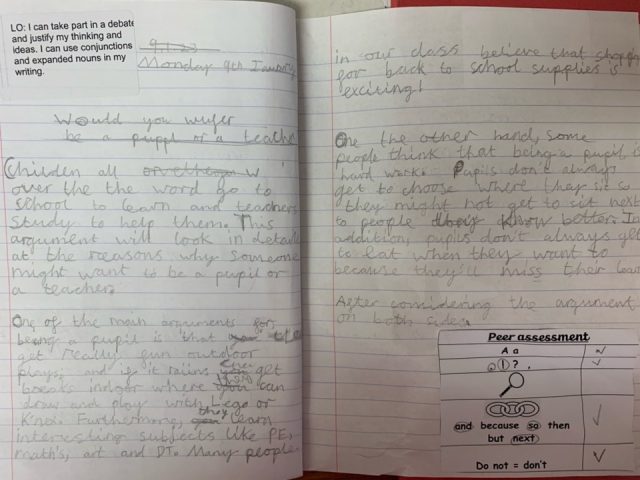 LO: I can take part in a debate
and justify my thinking and
ideas. I can use conjunctions
and expanded nouns in my
writing.
9.1.23
Monday 9th January
Would you
be a pupil or a teache
Children all
over the the word go to
school to learn and teachers
Study to help them. This
argument will look in detail
at the reasons why someone
might want to be a pupil or
a teacher.
One of the main arguments for
being a pupil is that
get really fun outdoor
plays, and if it raiins get
breats indoor where can
draw and play with Lego or
Furthermore, they learn
interesting subjects like PE,
math's, art and DT. Many people
in our class believe that
for back to school supplies is
exciting!
One the other hand, some
people think that being a pupil is
hard work. Pupils don't always
get to choose where they sit so
they might not get to sit next
to people they know better. In
addition, pupils don't always get
to eat when they want to
because they'll miss their
After considering the argument
on both sides.
Peer assessment
A a
. ! ? ,
and because so then
but next
Do not = don't